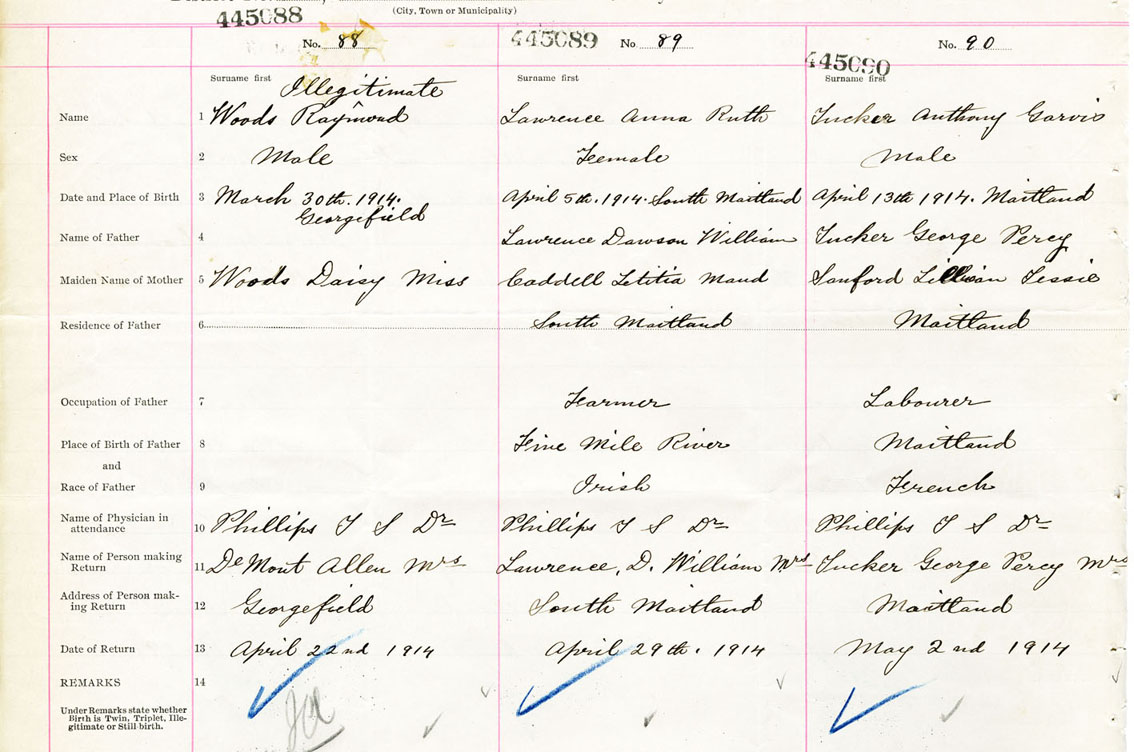 (City, Town or Municipality)
445088 445089 445090
No. 88 No 89 No. 90
Surname first Surname first Surname first
Illegitimate
Name 1 Woods Raymond Lawrence Anna Ruth Tucker Anthony Garvis
Sex 2 Male Female Male
Date and Place of Birth 3 March 30th. 1914. April 5th. 1914. South Maitland April 13th 1914. Maitland
Georgefield
Name of Father 4 Lawrence Dawson William Tucker George Percy
Maiden Name of Mother 5 Woods Daisy Miss Caddell Letitia Maud Sanford Lillian Jessie
Residence of Father 6 South Maitland Maitland
Occupation of Father 7 Farmer Labourer
Place of Birth of Father 8 Five Mile River Maitland
and
Race of Father 9 Irish French
Name of Physician in
attendance 10 Phillips T S Dr Phillips T S Dr Phillips T S Dr
Name of Person making
Return 11 DeMont Allen Mrs Lawrence, D. William Mrs Tucker George Percy Mrs
Address of Person mak-
ing Return 12 Georgefield South Maitland Maitland
Date of Return 13 April 22nd 1914 April 29th. 1914 May 2nd 1914
REMARKS 14
Under Remarks state whether
Birth is Twin, Triplet, Ille-
gitimate or Still-birth.